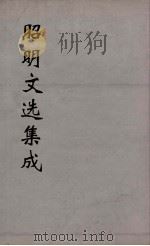 昭明文选集成
mtoou.info